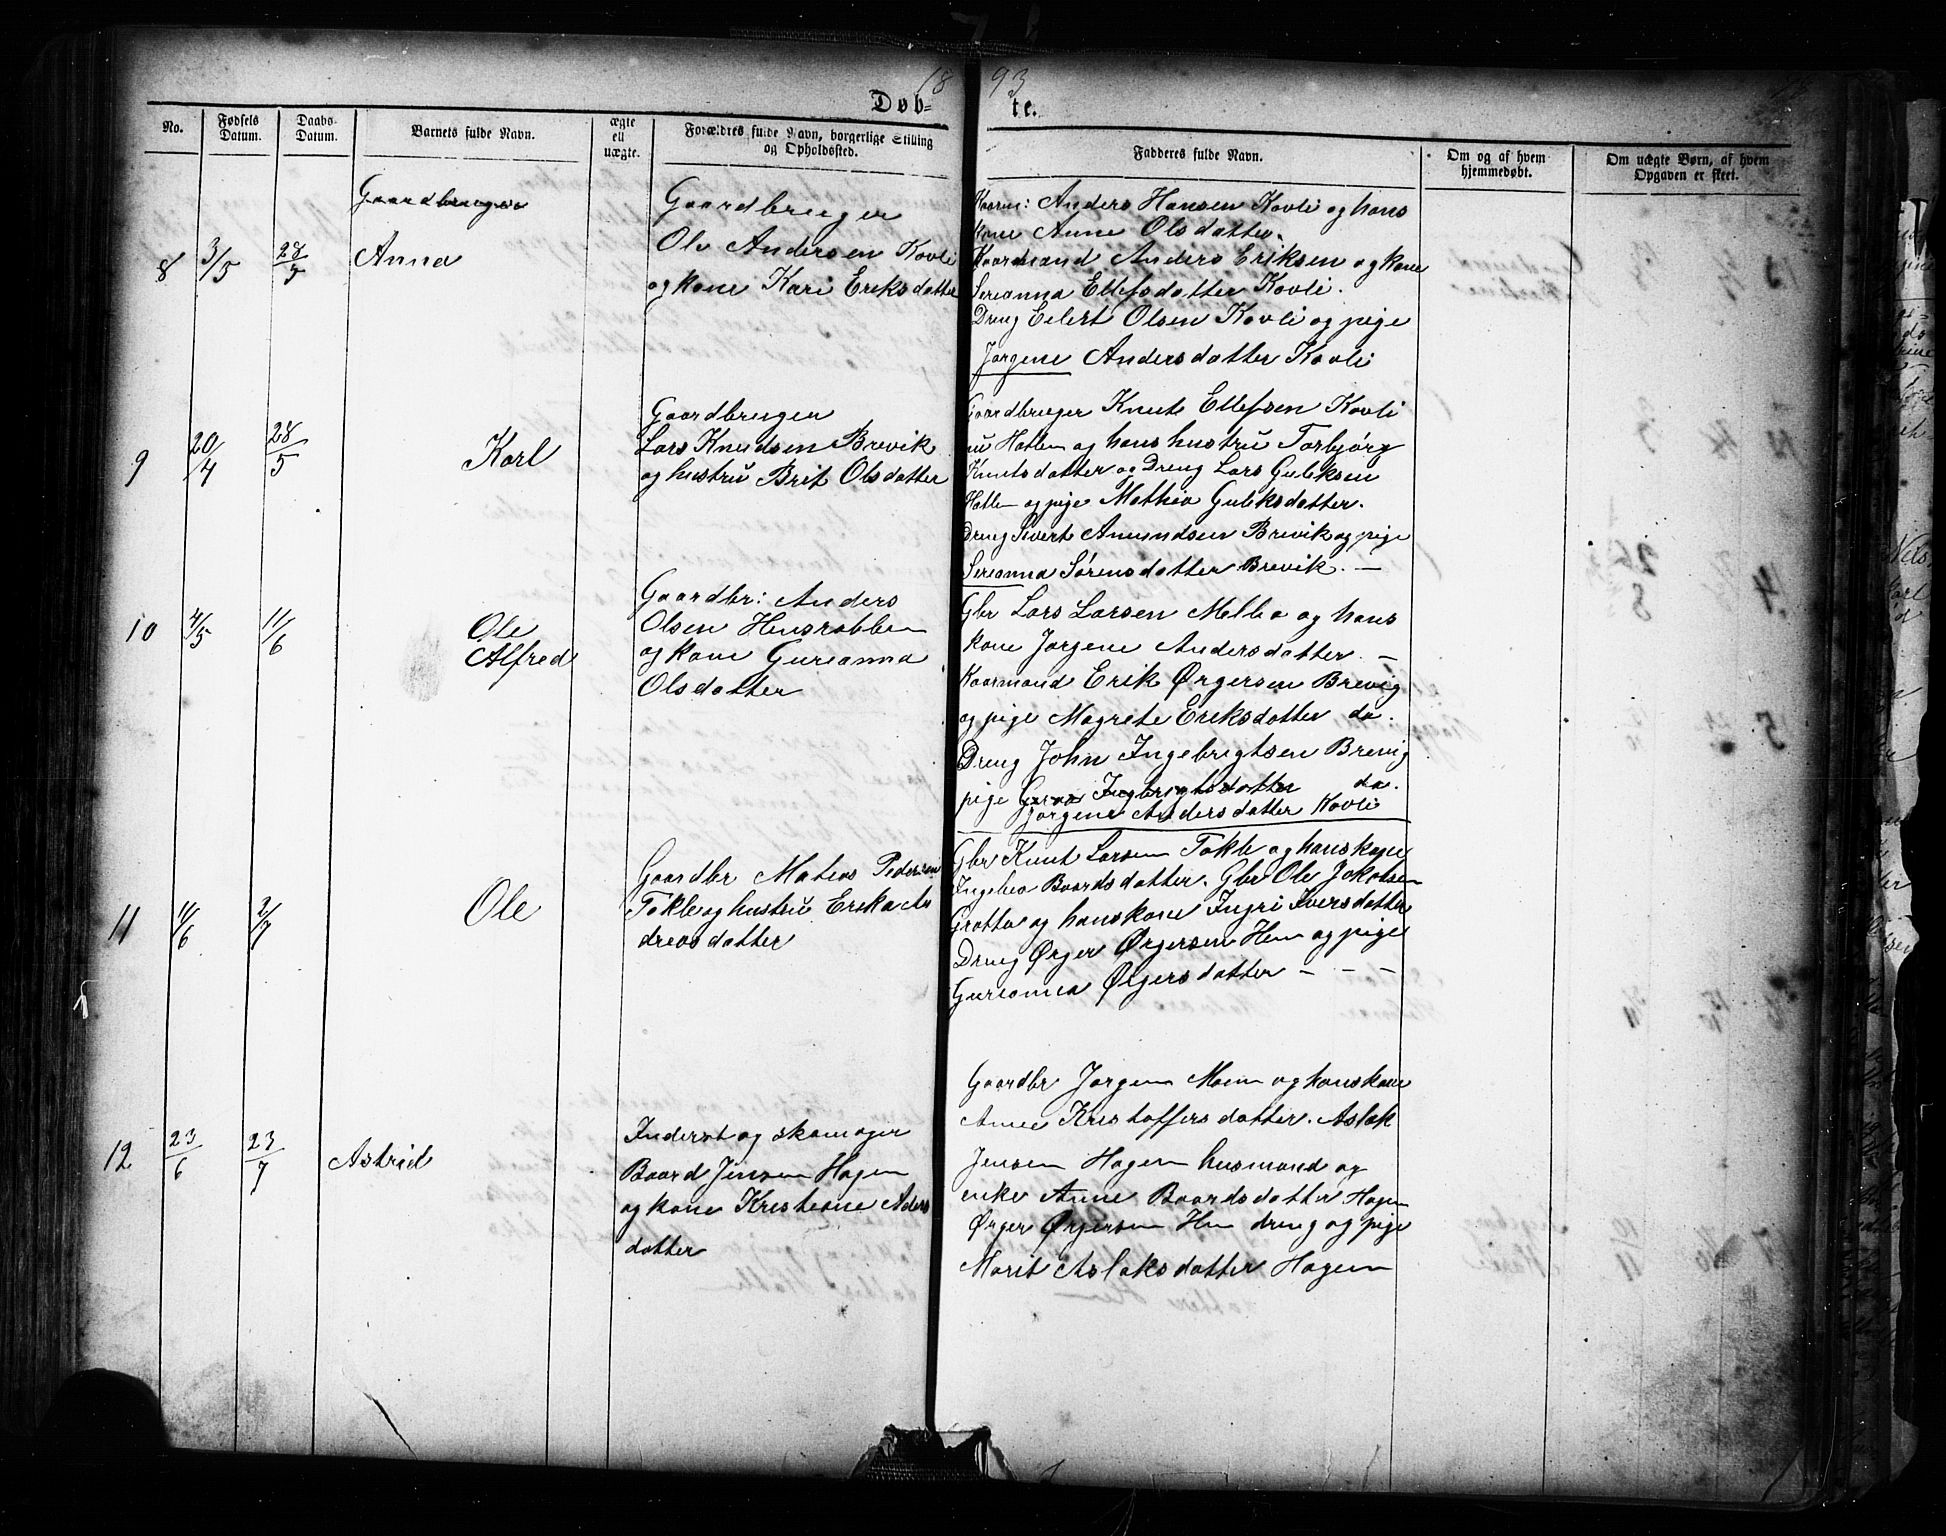 1893
Døb- te.
No.
Fødsels Datum.
Daabs- Datum.
Barnets fulde Navn.
ægte ell uægte.
Forældres fulde Navn, borgerlige Stilling og Opholdssted.
Fadderes fulde Navn.
Om og af hvem hjemmedøbt.
Om uægte Børn, af hvem Opgaven er skeet.
Gaardbruger
8 3/5 28/5 Anna
Gaardbruger
Ole Andersen Kovli
og kone Kari Eriksdatter
Kaarm: Anders Hansen Kovli og hans
kone Anne Olsdatter.
Kaarmand Anders Eriksen og kone
Serianna Ellefsdatter Kovli.
Dreng Eilert Olsen Kovli og pige
Jørgene Andersdatter Kovli
9 20/4 28/5 Karl
Gaardbruger
Lars Knudsen Brevik
og hustru Brit Olsdatter
Gaardbruger Knut Ellefsen Kovli
nu Hatlen og hans hustru Torbjørg
Knutsdatter og Dreng Lars Guliksen
Hatlen og pige Mathea Guliksdatter.
Dreng Sivert Amundsen Brevik og pige
Serianna Sørensdatter Brevik. —
10 4/5 11/6 Ole
Alfred
Gaardbr: Anders
Olsen Hensrabben
og kone Gurianna
Olsdatter
Gbr Lars Larsen Melbø og hans
kone Jørgene Andersdatter. —
Kaarmand Erik Ørgersen Brevig
og pige Magrete Eriksdatter do.
Dreng John Ingebrigtsen Brevig
pige Guroa Ingbrigtsdatter do.
Jørgene Andersdatter Kovli
11 11/6 2/7 Ole
Gaardbr Mateas Pedersen
Takle og hustru Erika An
dreasdatter
Gbr Knut Larsen Takle og hans kone
Ingebea Baardsdatter. Gbr Ole Jakobsen
Grøtta og hans kone Ingri Iversdatter
Dreng Ørger Ørgersen Hem og pige
Gurianna Ørgersdatter — — —
12 23/6 23/7 Astrid
Inderst og skomager
Baard Jensen Hagen
og kone Kristiane Aders
datter
Gaardbr Jørgen Moen og hans kone
Anne Kristoffersdatter. Aslak
Jensen Hagen husmand og
enke Anne Baardsdatter Hagen
Ørger Ørgersen Hem dreng og pige
Marit Aslaksdatter Hagen